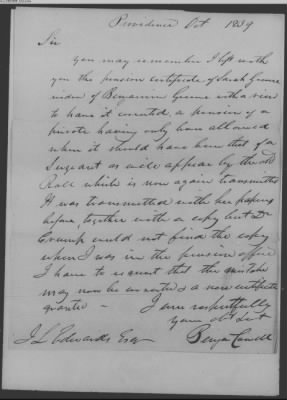 Providence Oct 1839
Sir
You may remember I left with
you the pension certificate of Sarah Greene
widow of Benjamin Greene with a view
to have it corrected, a pension of a
private having only been allowed
when it should have been that of a
Sergeant as will appear by the old
Roll which is now again transmitted
It was transmitted with her papers
before, together with a copy but Dr
could not find the copy
when I was in the pension office
I have to request that the mistake
may now be corrected & a new certificate
granted —
I am respectfully
your obt Svt
Benja Cowell
J L Edwards Esq